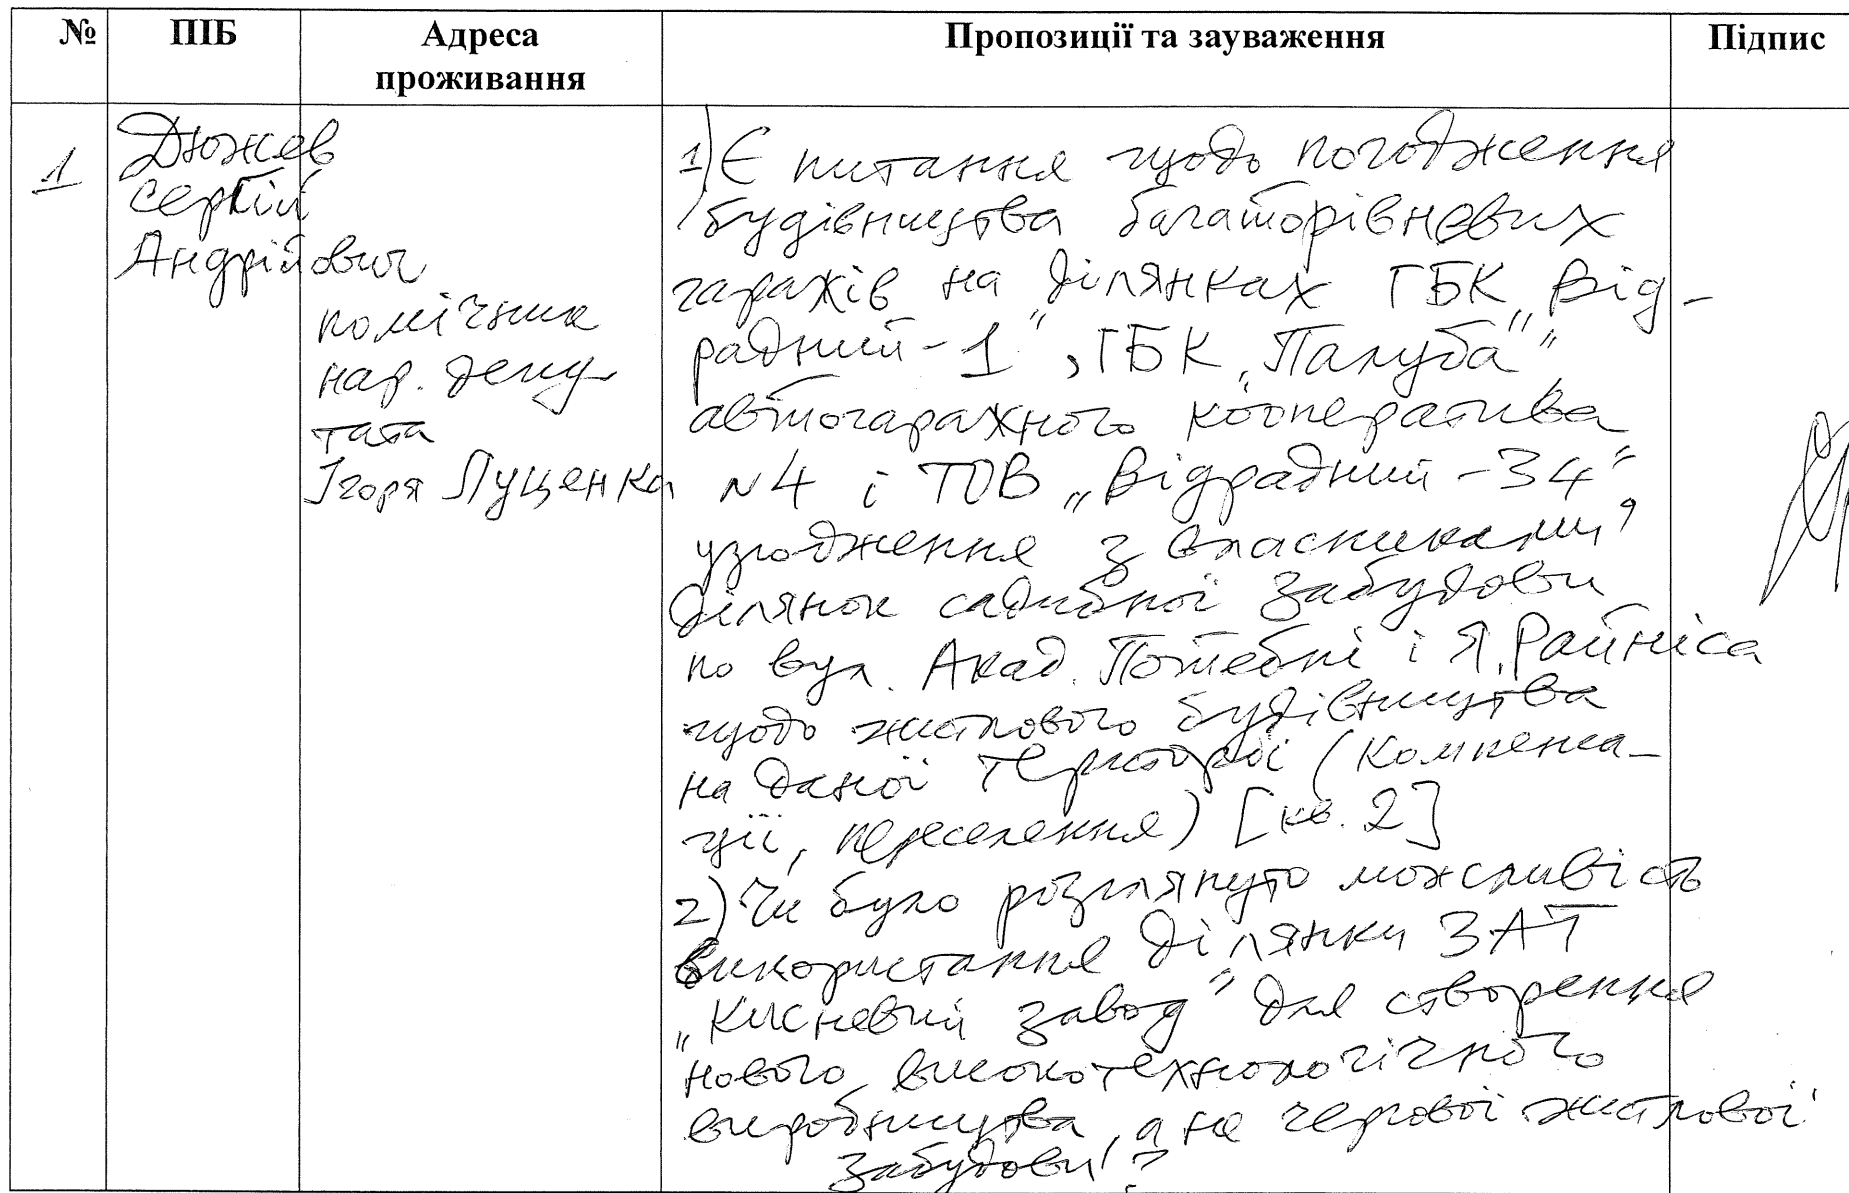 № ПІБ Адреса проживання Пропозиції та зауваження Підпис
1
Дюжев
Сергій
Андрійович
помічник
нар. депу-
тата
Ігоря Луценка
1) Є питання щодо погодження
будівництва багаторівневих
гаражів на ділянках ГБК „Від-
радний-1“, ГБК „Палуба“,
автогаражного кооператива
№4 і ТОВ „Відрадний-34“,
узгодження з власниками
ділянок садибної забудови
по вул. Акад. Потебні і Я. Райніса
щодо житлового будівництва
на даної території (компенса-
ції, переселення) [кв. 2]
2) Чи було розглянуто можливість
використання ділянки ЗАТ
„Кисневий завод“ для створення
нового високотехнологічного
виробництва, а не чергової житлової
забудови!?